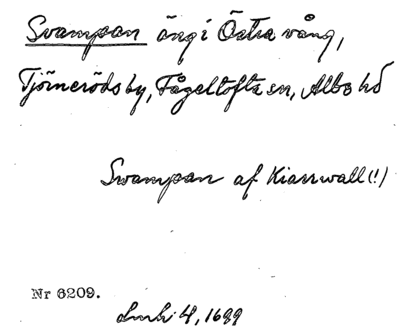 Svampan äng i Östra vång,
Tjörneröds by, Fågeltofta sn, Albo hd
Swampan af Kiarrwall (!)
Nr 6209.
4, 1699